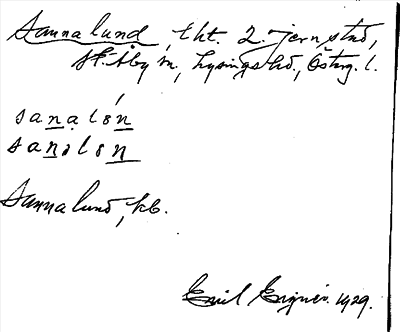 Sannalund, tht. 2. jernstnd,
Sk. Åby sn, Lysings hd, Östrg. l.
sanalón
sanalón
Sannalund, kb.
Emil Eignér. 1929.